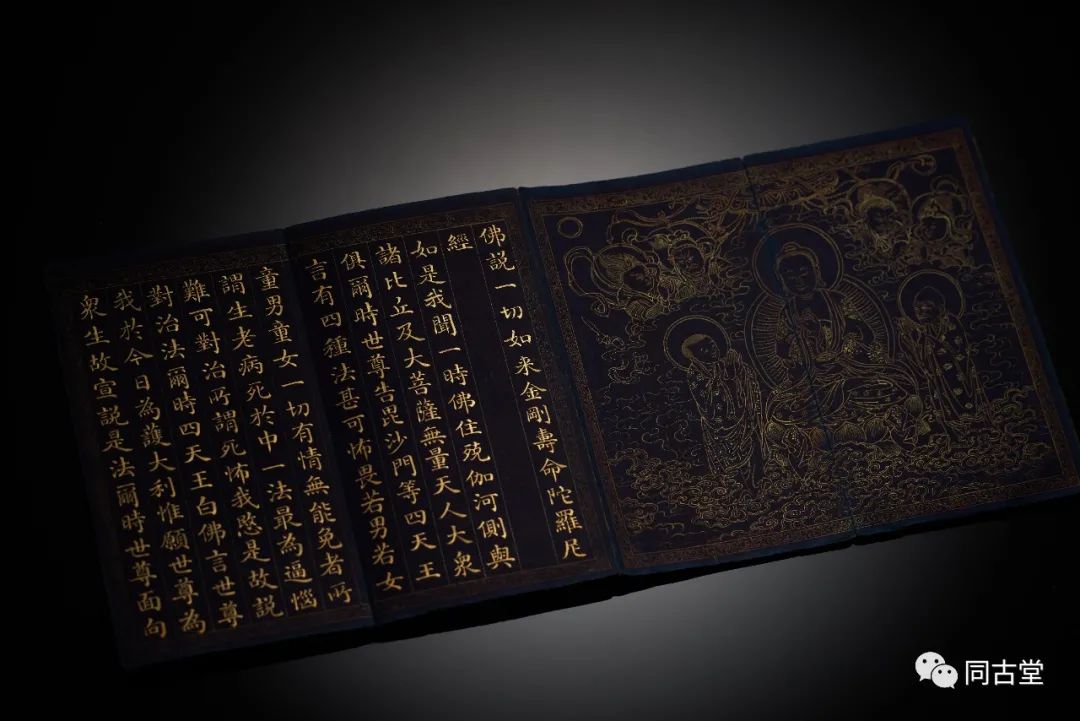 佛說一切如来金剛壽命陀羅尼
經
如是我聞一時佛住殑伽河側與
諸比丘及大菩薩無量天人大衆
俱爾時世尊告毘沙門等四天王
言有四種法甚可怖畏若男若女
童男童女一切有情無能免者所
謂生老病死於中一法最為逼惱
難可對治所謂死怖我愍是故説
對治法爾時四天王白佛言世尊
我於今日為獲大利惟願世尊為
衆生故宣説是法爾時世尊面向
同古堂